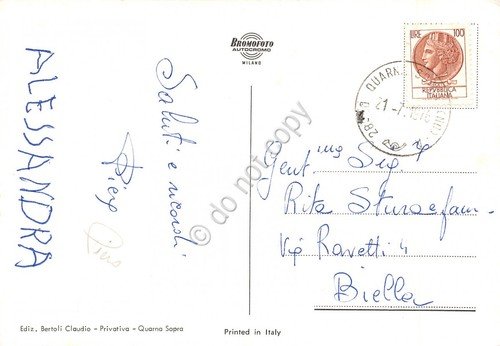 BROMOFOTO
AUTOCROMO
MILANO
LIRE 100
REPVBBLICA
ITALIANA
QUARNA
21-7
28
ALESSANDRA
Saluti e ricordi
Piero
Piero
Gent.mig Sig.
Rita Sturaefam.
Via Ravetti 4
Biella
do not copy
Ediz. Bertoli Claudio - Privativa - Quarna Sopra
Printed in Italy